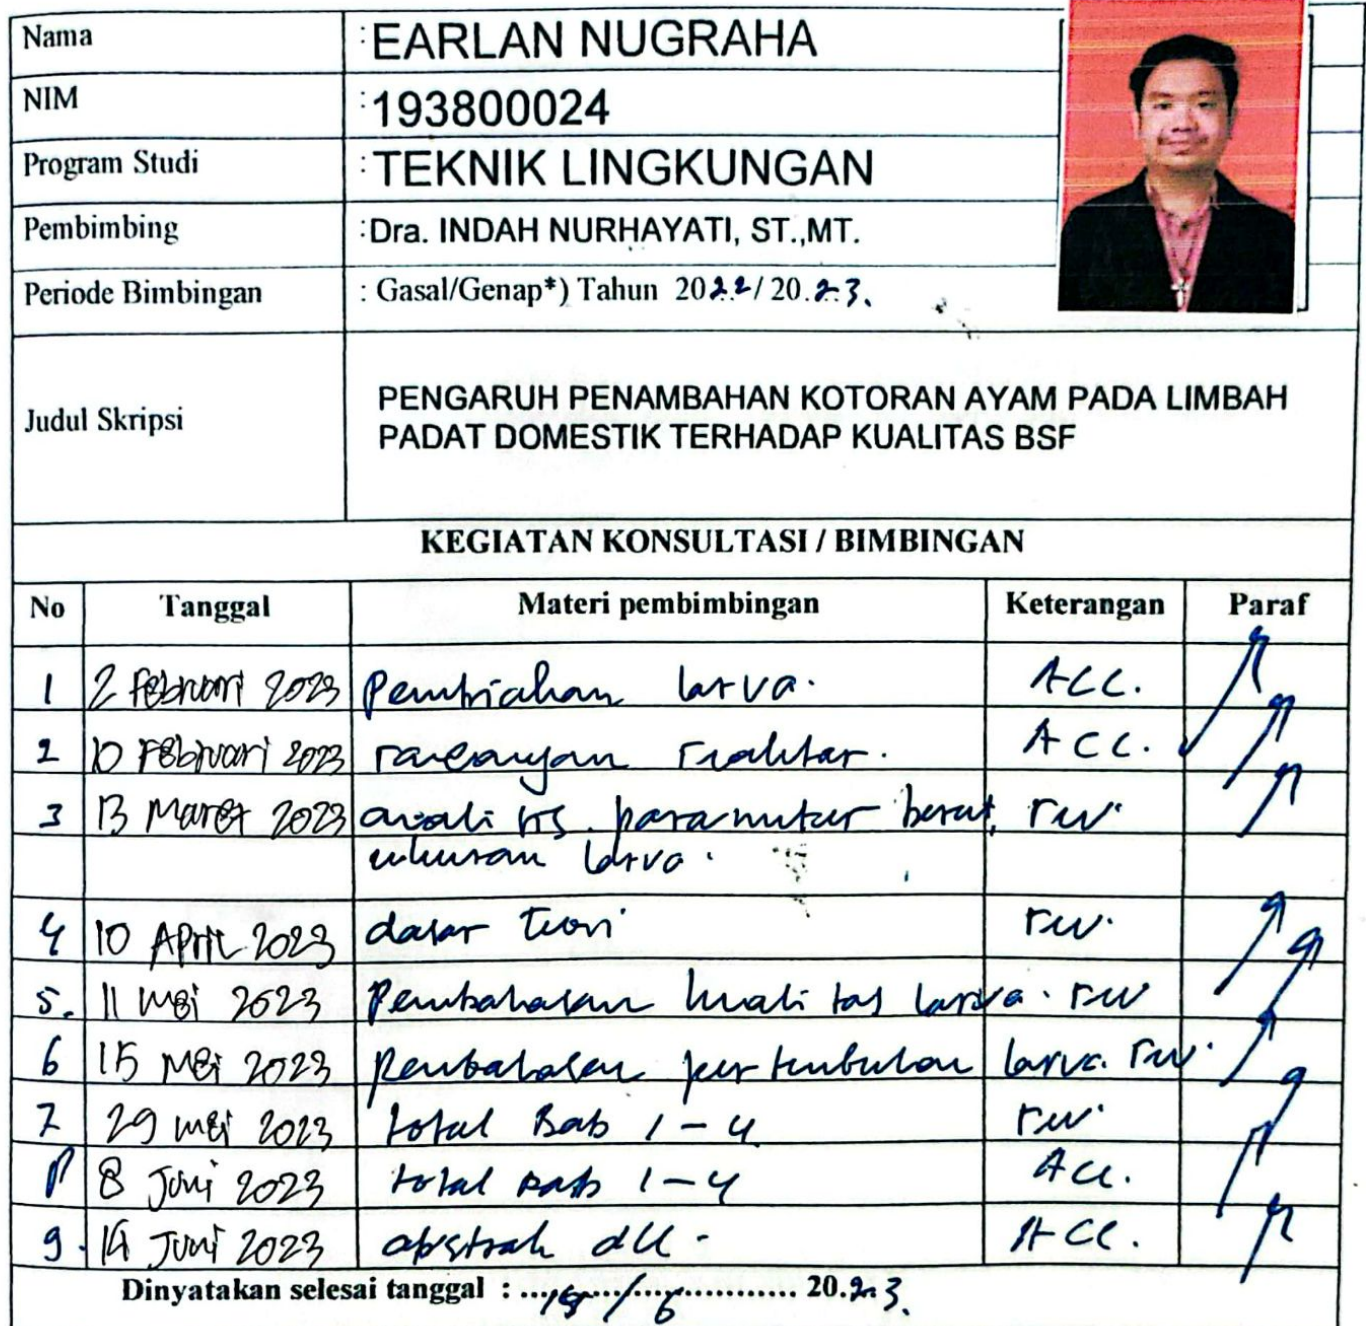 Nama : EARLAN NUGRAHA
NIM : 193800024
Program Studi : TEKNIK LINGKUNGAN
Pembimbing : Dra. INDAH NURHAYATI, ST.,MT.
Periode Bimbingan : Gasal/Genap*) Tahun 2022/2023.
Judul Skripsi
PENGARUH PENAMBAHAN KOTORAN AYAM PADA LIMBAH
PADAT DOMESTIK TERHADAP KUALITAS BSF
KEGIATAN KONSULTASI / BIMBINGAN
No Tanggal Materi pembimbingan Keterangan Paraf
1 2 Februari 2023 larva. ACC.
2 10 Februari 2023 rancangan reaktor. ACC.
3 13 Maret 2023 analisis parameter berat, rev.
ukuran larva.
4 10 April 2023 dasar teori rev.
5. 11 Mei 2023 Pembahasan kualitas larva. rev
6 15 Mei 2023 pembahasan pertumbuhan larva. rev.
7 29 mei 2023 total Bab 1-4 rev.
8 8 Juni 2023 total Bab 1-4 ACC.
9. Juni 2023 abstrak dll. ACC.
Dinyatakan selesai tanggal : / 6 2023.